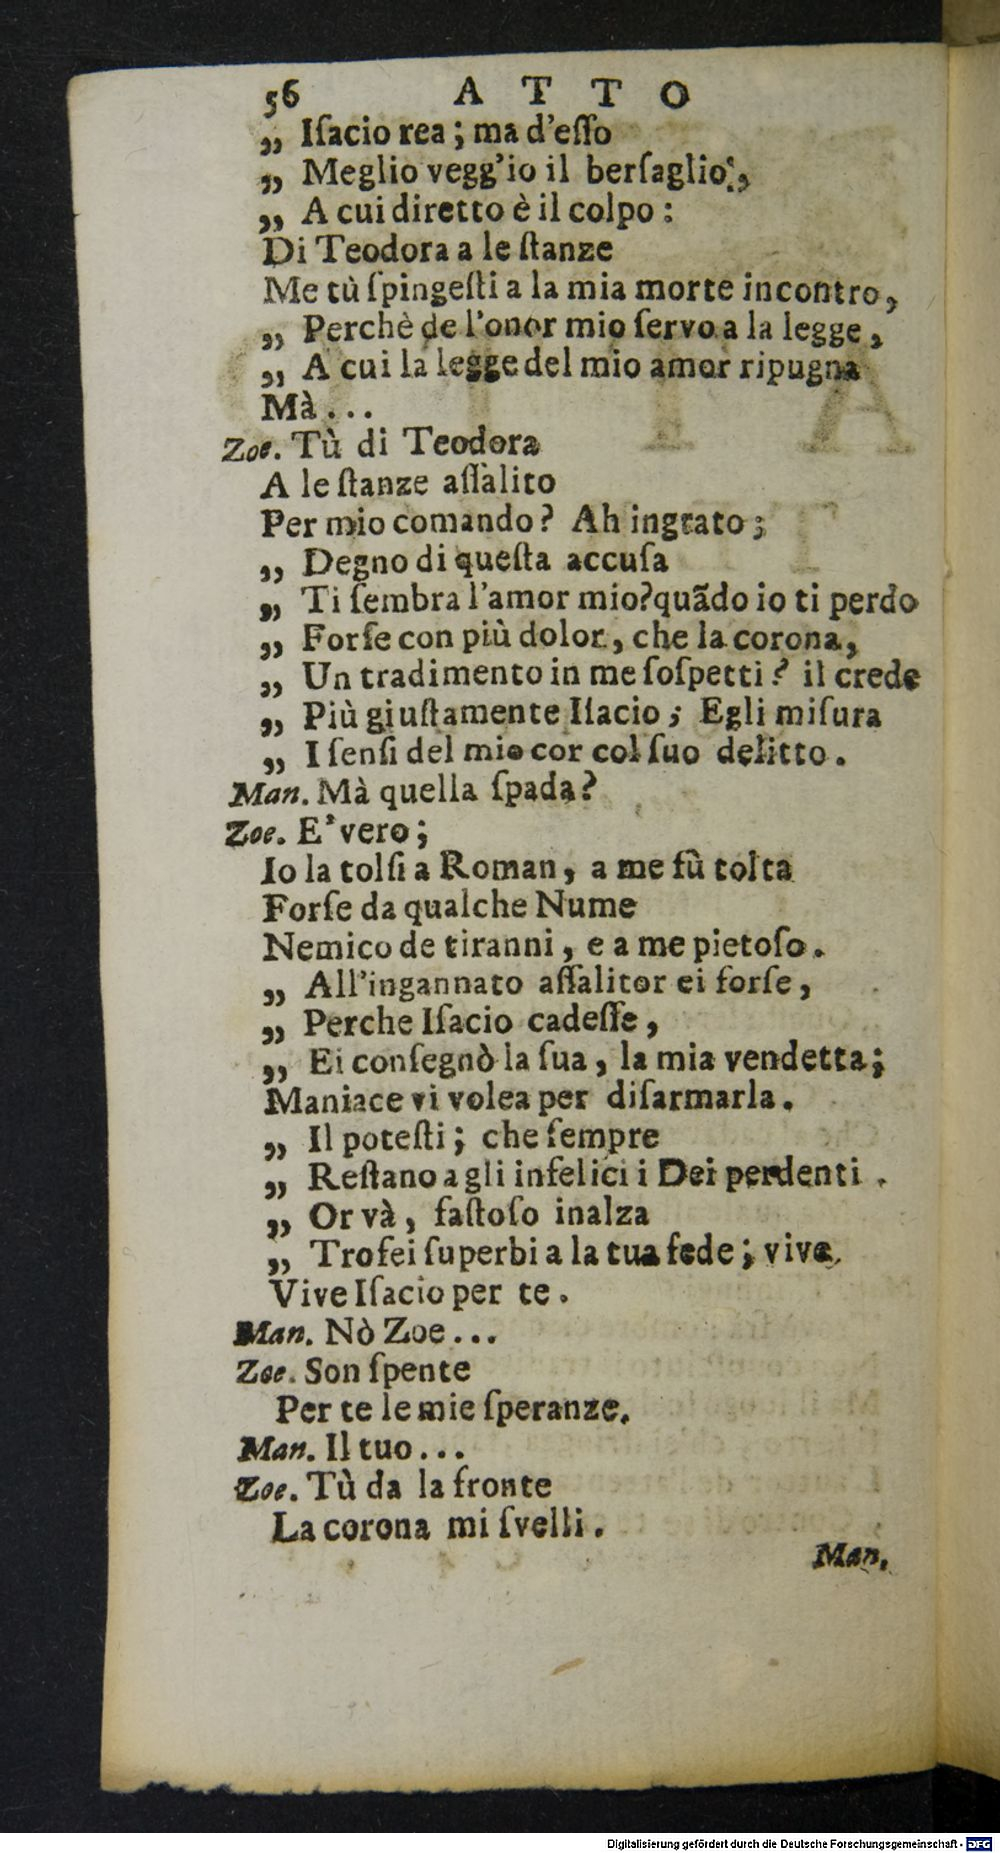 56 ATTO
„ Iſacio rea; ma d'eſſo
„ Meglio vegg'io il berſaglio,
„ A cui diretto è il colpo:
Di Teodora a le ſtanze
Me tù ſpingeſti a la mia morte incontro,
„ Perchè de l'onor mio ſervo a la legge,
„ A cui la legge del mio amor ripugna
Mà...
Zoe. Tù di Teodora
A le ſtanze aſſalito
Per mio comando? Ah ingrato;
„ Degno di queſta accuſa
„ Ti ſembra l'amor mio?quãdo io ti perdo
„ Forſe con più dolor, che la corona,
„ Un tradimento in me ſoſpetti? il crede
„ Più giuſtamente Iſacio; Egli miſura
„ I ſenſi del mio cor col ſuo delitto.
Man. Mà quella ſpada?
Zoe. E' vero;
Io la tolſi a Roman, a me fù tolta
Forſe da qualche Nume
Nemico de tiranni, e a me pietoſo.
„ All'ingannato aſſalitor ei forſe,
„ Perche Iſacio cadeſſe,
„ Ei conſegnò la ſua, la mia vendetta;
Maniace vi volea per diſarmarla.
„ Il poteſti; che ſempre
„ Reſtano a gli infelici i Dei perdenti.
„ Or và, faſtoſo inalza
„ Trofei ſuperbi a la tua fede; vive,
Vive Iſacio per te.
Man. Nò Zoe...
Zoe. Son ſpente
Per te le mie ſperanze.
Man. Il tuo...
Zoe. Tù da la fronte
La corona mi ſvelli.
Man.
Digitalisierung gefördert durch die Deutsche Forschungsgemeinschaft - DFG